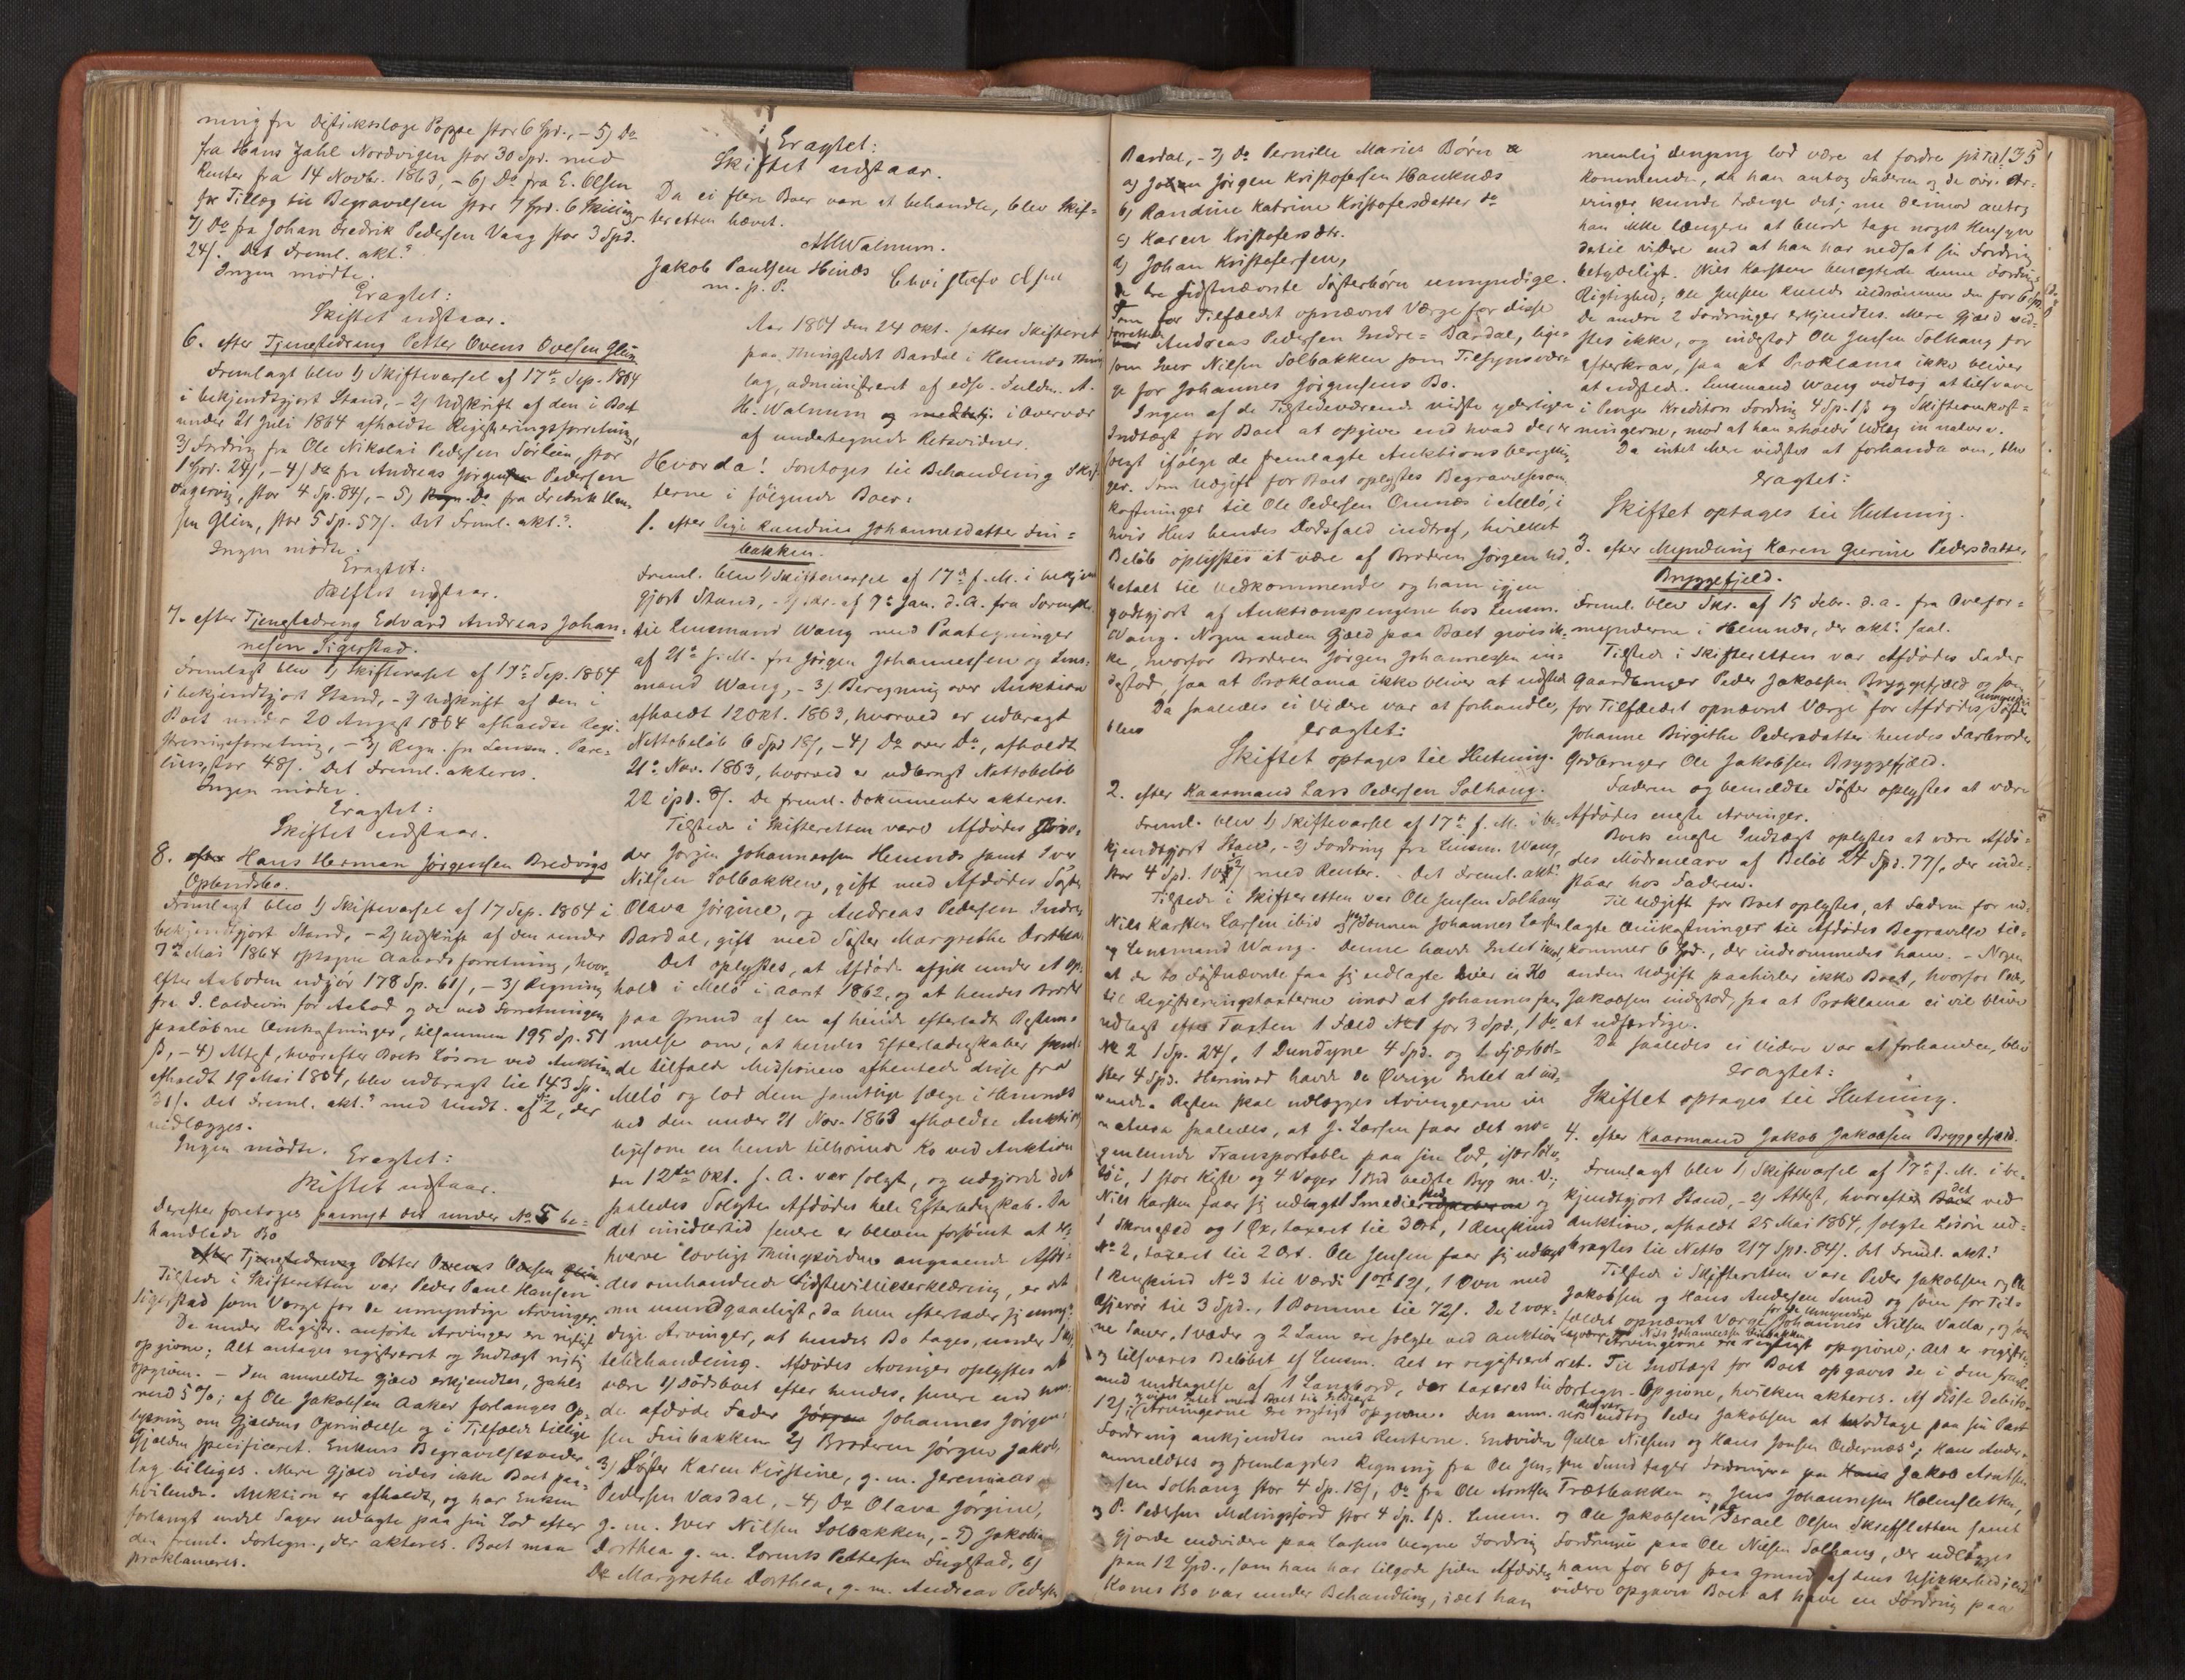 ning fra Distriktslæge Poppe stor 6 Spd., – 5) Do
fra Hans Zahl Nordvigen stor 30 Spd. med
Renter fra 14 Novbr. 1863, – 6) Do fra E. Olsen
for Tillæg til Begravelsen stor 7 Spd. 6 Skilling
7) Do fra Johan Fredrik Pedersen Vaag stor 3 Spd.
24 s. Det freml. akt.
Ingen mødte.
Eragtet:
Skiftet udstaar.
6. efter Tjenestedreng Petter Ovens Ovesen Glein
Fremlagt blev 1) Skiftevarsel af 17de Sep. 1864
i bekjendtgjort Stand, – 2) Udskrift af den i Boet
under 21 Juli 1864 afholdte Registreringsforretning,
3) Fordring fra Ole Nikolai Pedersen Sørlien, stor
1 Spd. 24 s, – 4) Do fra Andreas Jørgensen Pedersen
stor 4 Sp. 84 s, – 5) Do fra Fredrik
Glein, stor 5 Sp. 57 s. Det freml. akt.
Ingen mødte.
Eragtet:
Skiftet udstaar.
7. efter Tjenestedreng Edvard Andreas Johan-
nesen Sigerstad.
Fremlagt blev 1) Skiftevarsel af 17de Sep. 1864
i bekjendtgjort Stand, – 2) Udskrift af den i
Boet under 20 August 1864 afholdte Regi-
streringsforretning, – 3) Regn. fra Lensm.
stor 48 s. Det freml. akteres.
Ingen møder.
Eragtet:
Skiftet udstaar.
8. efter Hans Herman Jørgensen Bredvigs
Opbudsbo.
Fremlagt blev 1) Skiftevarsel af 17 Sep. 1864 i
bekjendtgjort Stand, – 2) Udskrift af den under
7de Mai 1864 optagne Aabodsforretning, hvor-
efter Aaboden udgjør 178 Sp. 61 s, – 3) Regning
fra I. Coldevin for Aabod og de ved Forretningen
paaløbne Omkostninger, tilsammen 195 Sp. 51
s, – 4) Attest, hvorefter Boets Løsøre ved Auktion
afholdt 19 Mai 1864, blev udbragt til 143 Sp.
31 s. Det freml. akt. med Undt. af No 2, der
vidlægges.
Ingen mødte. Eragtet:
Skiftet udstaar.
Derefter foretoges paanyt det under No 5 be-
handlede Bo
efter Tjenestedreng Petter Ovens Ovesen Glein
Tilstede i Skifteretten var Peder Paul Hansen
Sigerstad som Værge for de umyndige Arvinger.
De under Registr. anførte Arvinger ere rigtigt
opgivne; Alt antages registreret og Indtægt rigtig
opgiven. – Den anmeldte Gjæld erkjendtes, Zahls
med 5 %; af Ole Jakobsen Aaker forlanges Op-
lysning om Gjældens Oprindelse og i Tilfælde tillige
Gjælden specificeret. Enkens Begravelsesveder-
lag billiges. Mere Gjæld vides ikke Boet paa-
hvilende. Auktion er afholdt, og har Enken
forlangt endel Sager udlagte paa sin Lod efter
den freml. Fortegn., der akteres. Boet maa
proklameres.
Eragtet:
Skiftet udstaar.
Da ei flere Boer vare at behandle, blev Skif-
teretten hævet.
AHWalnum.
Jakob Paulsen Hinds
m. p. P.
Christofer Olsen
Aar 1864 den 24 Okt. sattes Skifteret
paa Thingstedet Bardal i Hemnes Thing
lag, administreret af edsv. Fuldm. A.
H. Walnum og i Overvær
af undertegnede Retsvidner.
Hvor da! Foretoges til Behandling Skif-
terne i følgende Boer:
1. efter Pige Randine Johannesdatter Fin-
bakken.
Freml. blev 1) Skiftevarsel af 17de f. M. i bekjendt-
gjort Stand, – 2) Skr. af 7de Jan. d. A. fra
til Lensmand Wang med Paategninger
af 21de s. M. fra Jørgen Johannessen og Lens-
mand Wang, – 3) Beregning over Auktion
afholdt 12 Okt. 1863, hvorved er udbragt
Nettobeløb 6 Spd 18 s, – 4) Do over Do, afholdt
21de Nov. 1863, hvorved er udbragt Nettobeløb
22 Spd. 8 s. De freml. Dokumenter akteres.
Tilstede i Skifteretten vare Afdødes Bro-
der Jørgen Johannessen Hemnes samt Iver
Nilsen Solbakken, gift med Afdødes Søster
Olava Jørgine, og Andreas Pedersen Indre
Bardal, gift med Søster Margrethe Dorthea.
Det oplystes, at Afdøde afgik under et Op-
hold i Melø i Aaret 1862, og at hendes Broder
paa Grund af en af hende efterladt Bestem-
melse om, at hendes Efterladenskaber skul-
de tilfalde Missionen afhentede disse fra
Melø og lod dem samtlige sælge i Hemnes
ved den under 21 Nov. 1863 afholdte Auktion
ligesom en hende tilhørende Ko ved Auktion
den 12te Okt. s. A. var solgt, og udgjorde det
saaledes Solgte Afdødes hele Efterladenskab. Da
det imidlertid senere er bleven forsømt at er-
hverve lovlige Thingsvidner angaaende Afdø-
des omhandlede Sidstevillieserklæring, er det
nu uundgaaeligt, da hun efterlader sig umyn-
dige Arvinger, at hendes Bo tages under Skif-
tebehandling. Afdødes Arvinger oplystes at
være 1) Dødsboet efter hendes, senere end hun
de afdøde Fader Jørgen Johannes Jørgen-
sen Finbakken 2) Broderen Jørgen Jakob,
3) Søster Karen Kirstine, g. m. Jeremias
Pedersen Vasdal, – 4) Do Olava Jørgine,
g. m. Iver Nilsen Solbakken, – 5) Jakobine
Dorthea g. m. Lorents Pettersen Fuglstad, 6)
Do Margrethe Dorthea, g. m. Andreas Pedersen
Bardal, – 7) Do Pernille Maries Børn
a) Jørgen Kristofersen Hauknes
b) Randine Katrine Kristofersdatter do
c) Karen Kristofersdtr.
d) Johan Kristofersen,
de tre sidstnævnte Søsterbørn umyndige.
Som for Tilfældet opnævnt Værge for disse
Andreas Pedersen Indre-Bardal, liges
som Iver Nilsen Solbakken som Tilsynsvær-
ge for Johannes Jørgensens Bo.
Ingen af de Tilstedeværende vidste yderligere
Indtægt for Boet at opgive end hvad der er
solgt ifølge de fremlagte Auktionsberegnin-
ger. Som Udgift for Boet oplystes Begravelsesom-
kostninger til Ole Pedersen Ornæs i Melø, i
hvis Hus hendes Dødsfald indtraf, hvilket
Beløb oplystes at være af Broderen Jørgen ud-
betalt til Vedkommende og ham igjen
godtgjort af Auktionspengene hos Lensm.
Wang. Nogen anden Gjæld paa Boet gives ik-
ke, hvorfor Broderen Jørgen Johannessen in-
destod saa at Proklama ikke bliver at udstede
Da saaledes ei Videre var at forhandle,
blev
Eragtet:
Skiftet optages til Slutning.
2. efter Kaarmand Lars Pedersen Solhaug.
Freml. blev 1) Skiftevarsel af 17de f. M. i be-
kjendtgjort Stand, – 2) Fordring fra Lensm. Wang
stor 4 Spd. med Renter. Det freml. akt.
Tilstede i Skifteretten var Ole Jensen Solhaug
Nils Karsten Larsen ibid og Sønnen Johannes Larsen
og Lensmand Wang. Denne havde Intet imod,
at de to Sidstnævnte faa sig udlagte hver en Ko
til Registreringstaxterne imod at Johannes faar
udlagt efter Taxten 1 Fæld No 1 for 3 Spd., 1 Do
No 2 1 Sp. 24 s, 1 Dundyne 4 Spd. og 1 Fjærbol-
ster 4 Spd. Herimod havde de Øvrige Intet at ind-
vende. Resten skal udlægges Arvingerne in
natura saaledes, at J. Larsen faar det no-
genlunde Transportable paa sin Lod, især
1 stor Kiste og 4 Voger 1 Bid bedste Byg m. V.;
Nils Karsten faar sig udlagt Smedie og
1 og 1 Øx, taxeret til 3 Ort, 1 Renskind
No 2, taxeret til 2 Ort. Ole Jensen faar sig udlagt
1 Renskind No 3 til Værdi 1 ort 12 s, 1 Ovn med
til 3 Spd., 1 Bomme til 72 s. De 2 vox-
ne Sauer, 1 Væder og 2 Lam ere solgte ved Auktion
og tilsvares Beløbet af Lensm. Alt er registreret
med Undtagelse af 1 Langbord, der taxeres til
12 s; Arvingerne ere rigtigt opgivne. Den anm.
Fordring ankjendtes med Renterne. Endvidere
anmeldtes og fremlagdes Regning fra Ole Jen-
sen Solhaug stor 4 Sp. 18 s, Do fra Ole Arntsen
og P. Pedersen stor 4 Sp. 1 s. Lensm.
gjorde endvidere paa Larsens Vegne Fordring
paa 12 Spd., som han har tilgode siden Afdødes
Kones Bo var under Behandling, idet han
135
nemlig dengang lod være at fordre sit Til-
kommende, da han antog Faderen og de øvr. Ar-
vinger kunde trænge det; nu derimod antog
han ikke længere at burde tage noget Hensyn
dertil videre end at han har nedsat sin Fordring
betydeligt. Nils Karsten benegtede denne Fordrings
Rigtighed; Ole Jensen kunde indrømme den for 6 Spd.
De andre 2 Fordringer erkjendtes. Mere Gjæld vid-
stes ikke, og indestod Ole Jensen Solhaug for
Efterkrav, saa at Proklama ikke bliver
at udstede. Lensmand Wang vedtog at tilsvare
i Penge Kreditors Fordring 4 Sp. 1 s og Skifteomkost-
ningerne, mod at han erholder Udlæg in natura.
Da intet Mere vidstes at forhandle om, blev
Eragtet:
Skiftet optages til Slutning.
3. efter Myndling Karen Gurine Pedersdatter
Bryggefjeld.
Freml. blev Skr. af 15 Febr. d. a. fra Overfor-
mynderne i Hemnes, der akt. saal.
Tilstede i Skifteretten var Afdødes Fader
Gaardbruger Peder Jakobsen Bryggefjeld og som
for Tilfældet opnævnt Værge for Afdødes umyndige Søster
Johanne Birgithe Pedersdatter hendes Farbroder
Gdbruger Ole Jakobsen Bryggefjeld.
Faderen og bemeldte Søster oplystes at være
Afdødes eneste Arvinger.
Boets eneste Indtægt oplystes at være Afdø-
des Mødrenearv af Beløb 24 Spd. 77 s, der inde-
staar hos Faderen.
Til Udgift for Boet oplystes, at Faderen for ud-
lagte Omkostninger til Afdødes Begravelse til-
kommer 6 Spd., der indrømmedes ham. – Nogen
anden Udgift paahviler ikke Boet, hvorfor Peder
Jakobsen indestod, saa at Proklama ei vil blive
at udfærdige.
Da saaledes ei Videre var at forhandle, blev
Eragtet:
Skiftet optages til Slutning.
4. efter Kaarmand Jakob Jakobsen Bryggefjeld.
Fremlagt blev 1) Skiftevarsel af 17de f. M. i be-
kjendtgjort Stand, – 2) Attest, hvorefter Boet det ved
Auktion, afholdt 25 Mai 1864, solgte Løsøre ud-
bragtes til Netto 217 Spd. 84 s. Det freml. akt.
Tilstede i Skifteretten vare Peder Jakobsen og Ole
Jakobsen og Hans Andersen Sund og som for Til-
fældet opnævnt Værge for de Umyndige Johannes Nilsen Valla, og som
Nils Johannessen
Arvingerne ere rigtigt opgivne; Alt er registre-
ret. Til Indtægt for Boet opgaves de i den freml.
Fortegn. Opgivne, hvilken akteres. Af disse Debito-
rer vedtog Peder Jakobsen at modtage paa sin Part
Nilsens og Hans Jonsen; Hans Ander-
sen Sund tager Fordringen paa Hans Jakob Arntsen
Trætbakken og Jens Johannesen Holmsletten,
og Ole Jakobsen, Israel Olsen samt
Fordringer paa Ole Nilsen Solhaug, der udlægges
ham for 60 s paa Grund af dens Usikkerhed; end-
videre opgaves Boet at have en Fordring paa